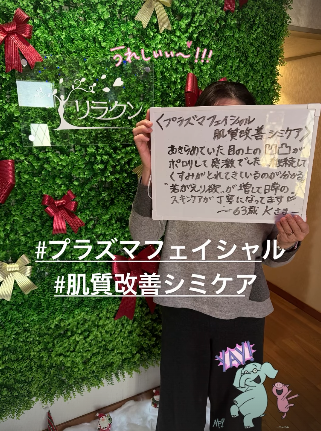 うれしいぃ~!!!
リラクン
<プラズマフェイシャル
肌質改善シミケア>
あきらめていた目の上の凸凹が
ポロリして
くすみがとれてきているのが分かる
"若がえり欲"が増して日々の
スキンケアが丁寧になってます♡
〜63歳 Kさま〜
#プラズマフェイシャル
#肌質改善シミケア
YAY!